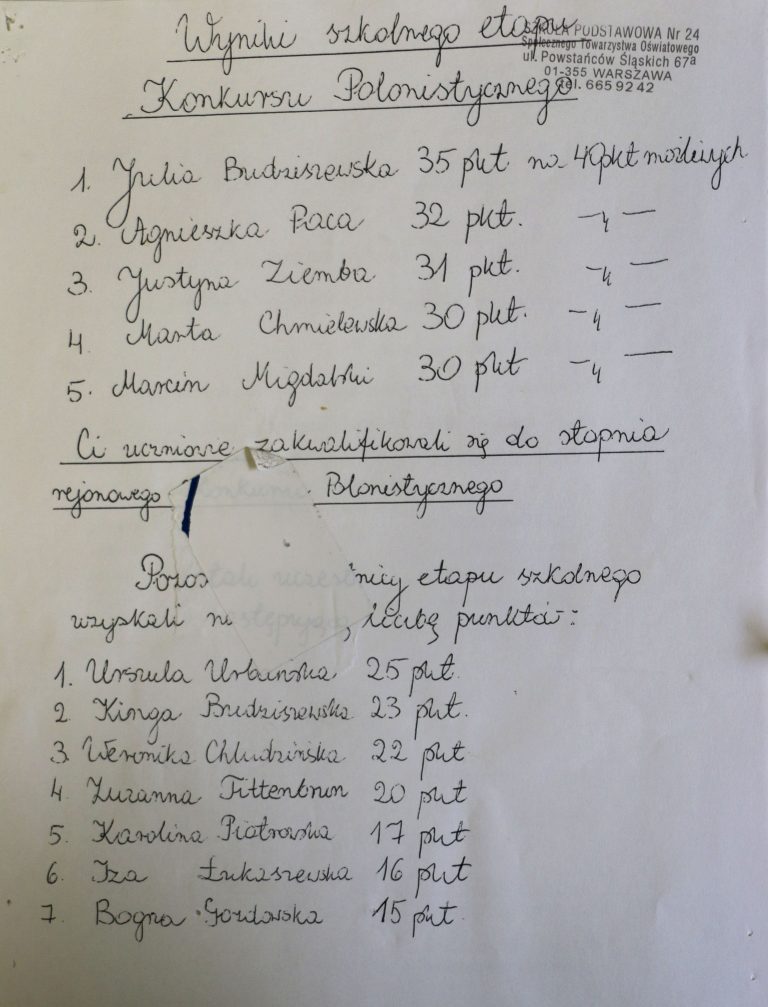 Wyniki szkolnego etapu
SZKOŁA PODSTAWOWA Nr 24
Społecznego Towarzystwa Oświatowego
ul. Powstańców Śląskich 67a
01-355 WARSZAWA
tel. 665 92 42
Konkursu Polonistycznego
1. Julia Budziszewska 35 pkt na 40 pkt możliwych
2. Agnieszka Paca 32 pkt. —〃—
3. Justyna Ziemba 31 pkt. —〃—
4 Marta Chmielewska 30 pkt. —〃—
5. Marcin Migdalski 30 pkt —〃—
Ci uczniowie zakwalifikowali się do stopnia
rejonowego Polonistycznego
Pozos nicy etapu szkolnego
uzyskali na liczbę punktów:
1. Urszula Urbańska 25 pkt
2 Kinga Budziszewska 23 pkt.
3 Weronika Chludzińska 22 pkt
4. Zuzanna Tittenbrun 20 pkt
5. Karolina Piotrowska 17 pkt
6. Iza Łukaszewska 16 pkt
7. Bogna 15 pkt